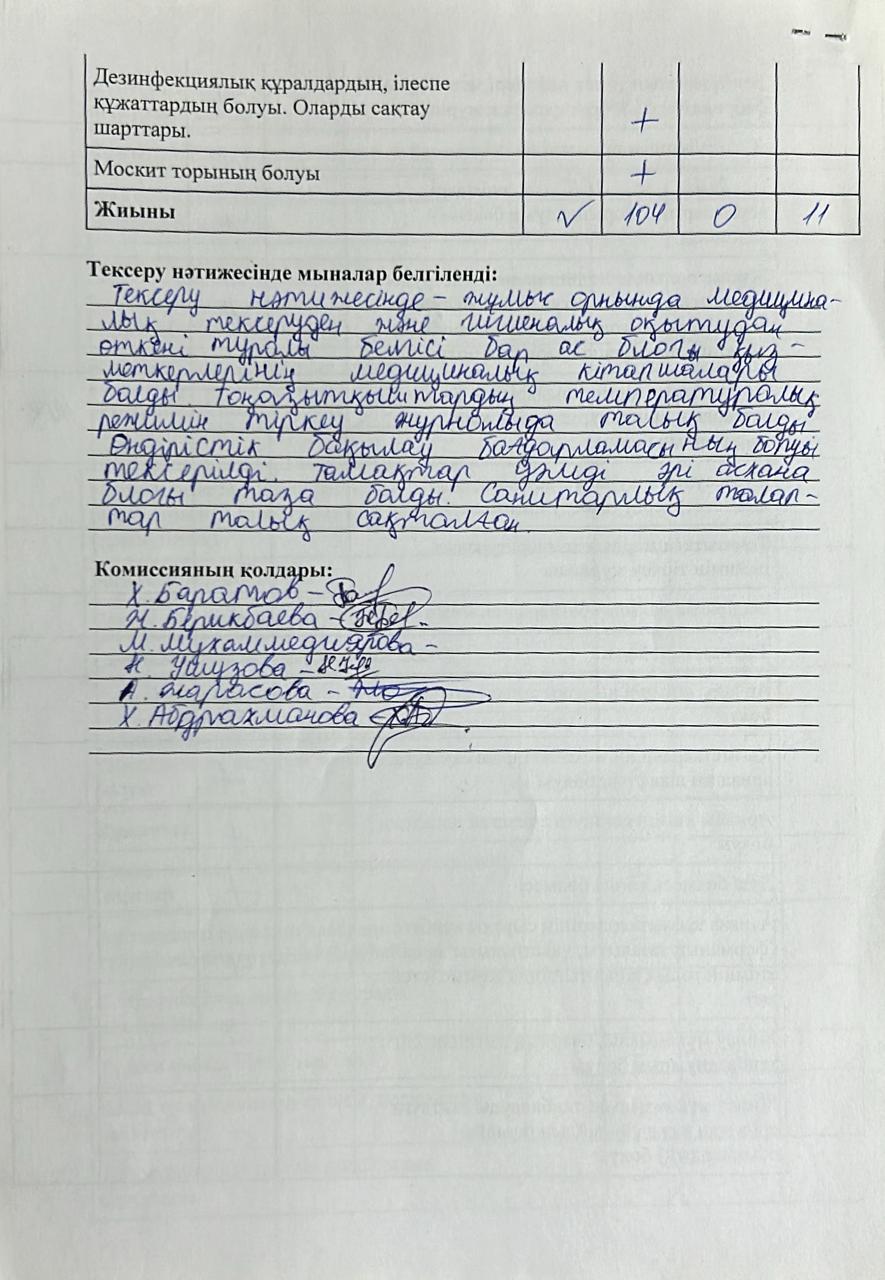 Дезинфекциялық құралдардың, ілеспе
құжаттардың болуы. Оларды сақтау
шарттары. +
Москит торының болуы +
Жиыны ✓ 104 0 11
Тексеру нәтижесінде мыналар белгіленді:
Тексеру нәтижесінде – жұмыс орнында медицина-
лық тексеруден және гигиеналық оқытудан
өткені туралы белгісі бар ас блогы қыз-
меткерлерінің медициналық кітапшалары
балды. Тоңазытқыштардың температуралық
режимін тіркеу журналыда талық балды
Өндірістік бақылау бағдарламасының болуы
тексерілді. Тамақтар дәмді әрі асхана
блогы таза балды. Санитарлық талап-
тар талық сақталған.
Комиссияның қолдары:
Х. Баратов –
Н. Берикбаева –
М. Мухаммедиярова –
Н.
А.
Х. Абдрахманова